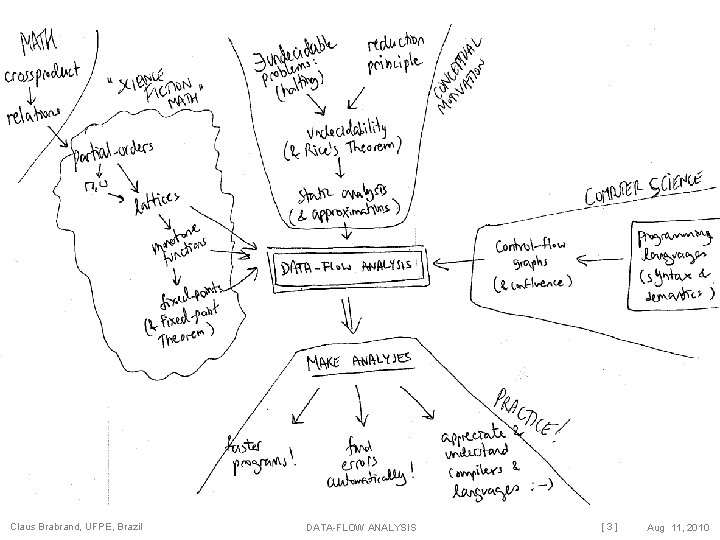 MATH
crossproduct
relations
"SCIENCE
FICTION
MATH"
partial-orders
⊓,⊔
lattices
monotone
functions
fixed-points
(& Fixed-point
Theorem)
∃ undecidable
problems:
(halting)
reduction
principle
CONCEPTUAL
MOTIVATION
undecidability
(& Rice's Theorem)
static analysis
(& approximations)
DATA-FLOW ANALYSIS
COMPUTER SCIENCE
Control-flow
graphs
(& confluence)
Programming
languages
(syntax &
semantics)
MAKE ANALYSES
PRACTICE!
faster
programs!
find
errors
automatically!
appreciate &
understand
compilers &
languages :-)
Claus Brabrand, UFPE, Brazil
DATA-FLOW ANALYSIS
[ 3 ]
Aug 11, 2010